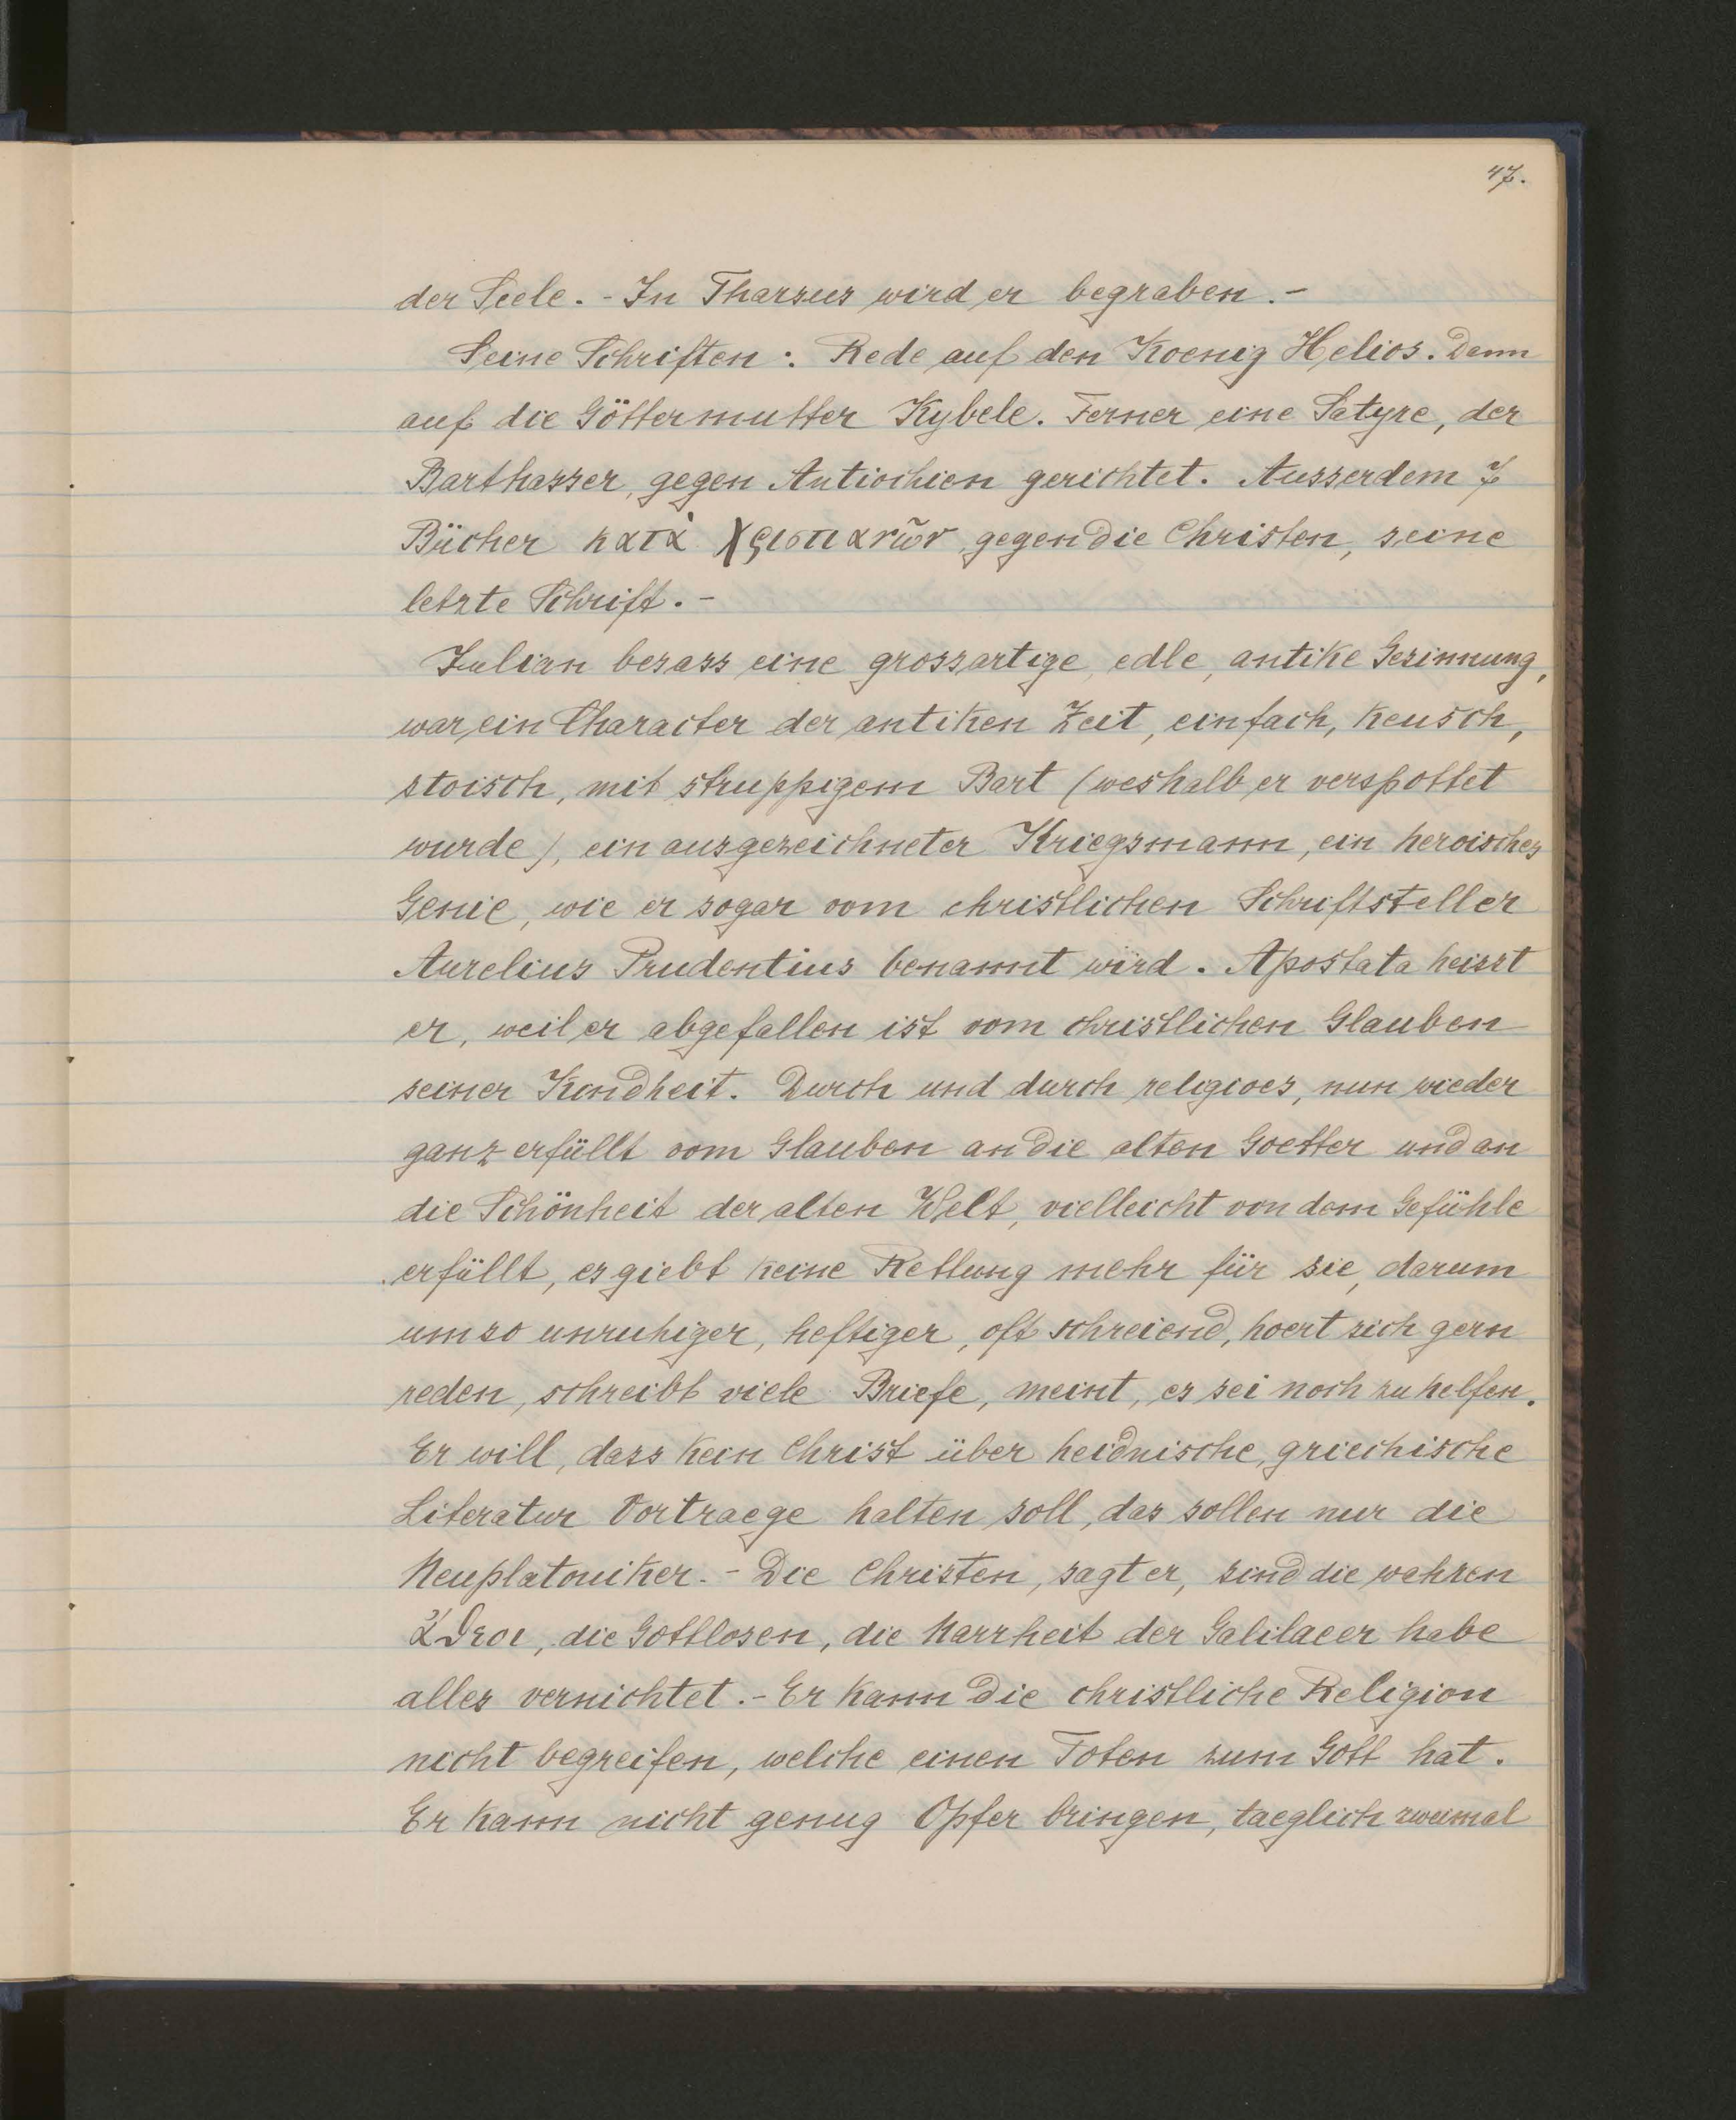 47.
der Seele. - In Tharsus wird er begraben. -
Seine Schriften: Rede auf den Koenig Helios. Dann
auf die Göttermutter Kybele. Ferner eine Satyre, der
Barthasser, gegen Antiochien gerichtet. Ausserdem 7
Bücher κατὰ Χριστιανῶν gegen die Christen, seine
letzte Schrift. -
Julian besass eine grossartige, edle, antike Gesinnung,
war ein Character der antiken Zeit, einfach, keusch,
stoisch, mit struppigem Bart (weshalb er verspottet
wurde), ein ausgezeichneter Kriegsmann, ein heroisches
Genie, wie er sogar vom christlichen Schriftsteller
Aurelius Prudentius benannt wird. Apostata heisst
er, weil er abgefallen ist vom christlichen Glauben
seiner Kindheit. Durch und durch religioes, nun wieder
ganz erfüllt vom Glauben an die alten Goetter und an
die Schönheit der alten Welt, vielleicht von dem Gefühle
erfüllt, es giebt keine Rettung mehr für sie, darum
umso unruhiger, heftiger, oft schreiend, hoert sich gern
reden, schreibt viele Briefe, meint, es sei noch zu helfen.
Er will, dass kein Christ über heidnische, griechische
Literatur Vortraege halten soll, das sollen nur die
Neuplatoniker. - Die Christen, sagt er, sind die wahren
ἄθεοι, die Gottlosen, die Narrheit der Galilaeer habe
alles vernichtet. - Er kann die christliche Religion
nicht begreifen, welche einen Toten zum Gott hat.
Er kann nicht genug Opfer bringen, taeglich zweimal